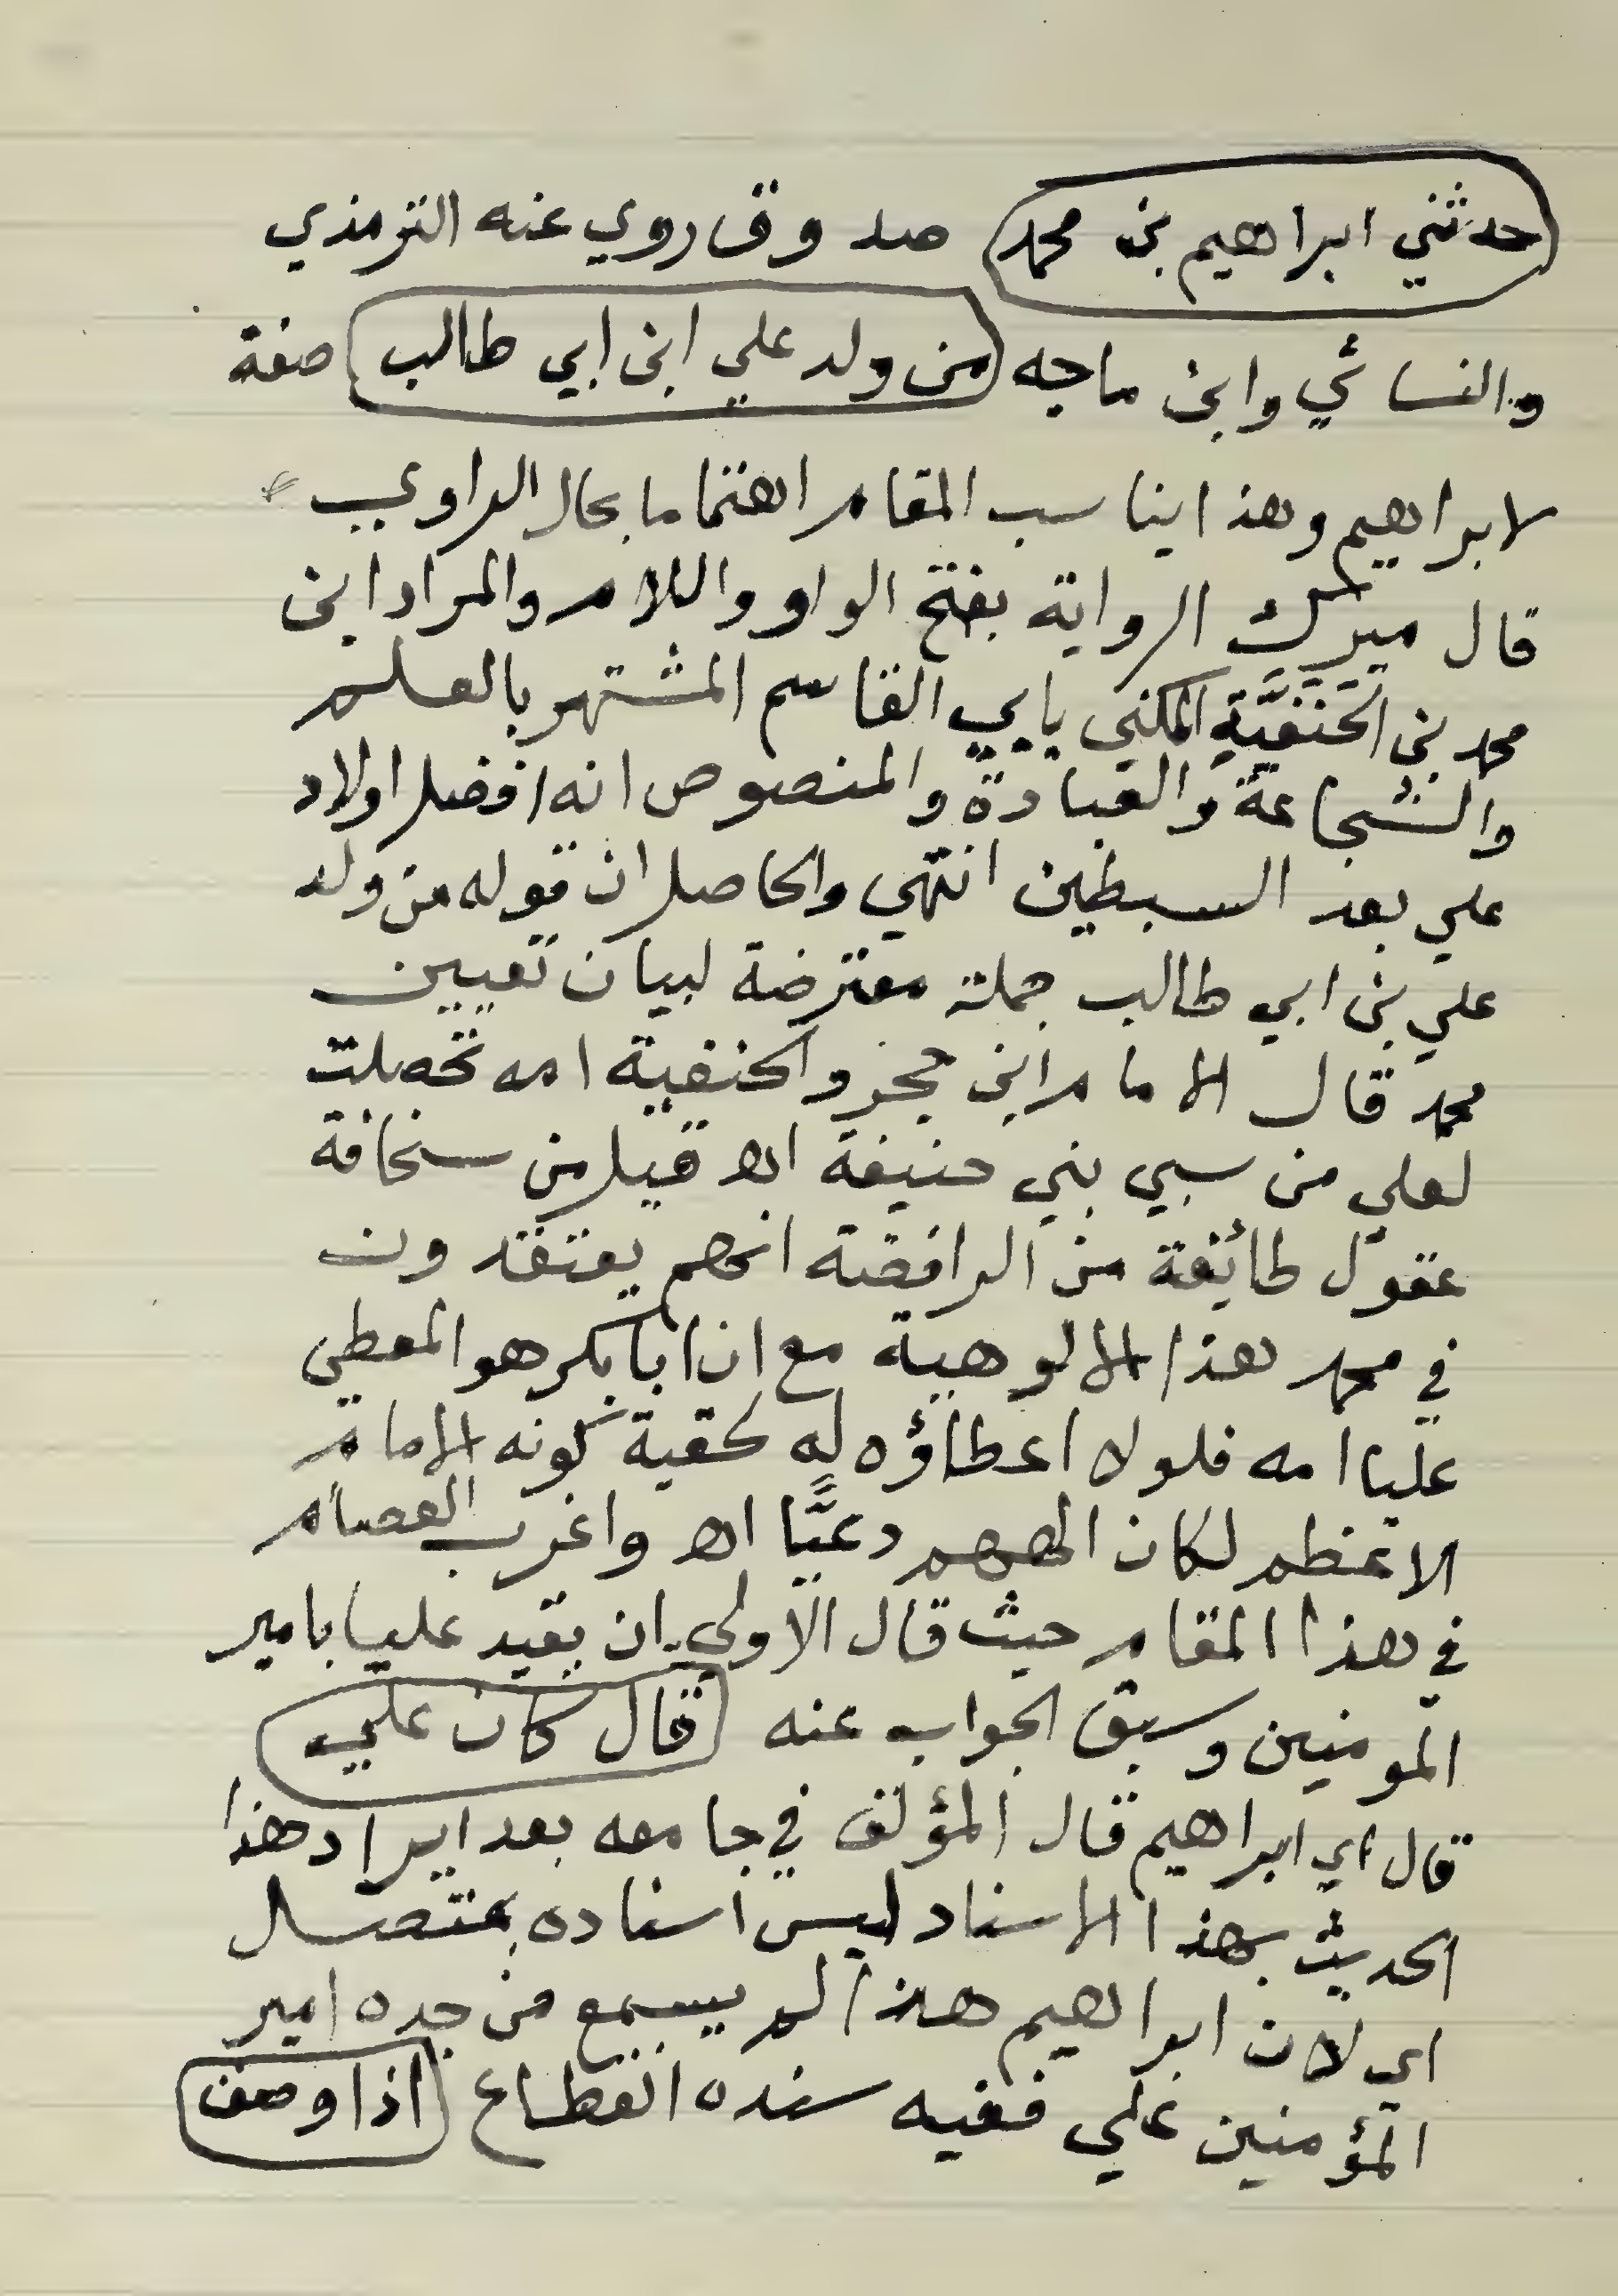 حدثني ابراهيم بن محمد صدوق روي عنه الترمذي
والنسائي وابن ماجه من ولد علي ابن ابي طالب صفة
لابراهيم وهذا يناسب المقام اهتماما بحال الراوي
قال ميرك الرواية بفتح الواو واللام والمراد ابن
محمد بن الحَنَفِيَّةِ المكنى بابي القاسم المشتهر بالعلم
والشجاعة والعبادة والمنصوص انه افضل اولاد
علي بعد السبطين انتهي والحاصل ان قوله من ولد
علي بن ابي طالب جملة معترضة لبيان تعيين
محمد قال الامام ابن حجر والحنفية امه تحصلت
لعلي من سبي بني حنيفة اه قيل من سخافة
عقول طائفة من الرافضة انهم يعتقدون
في محمد هذا الالوهية مع ان ابا بكر هو المعطي
عليا امه فلولا اعطاؤه له كحقية كونه الامام
الاعظم لكان الههم دعيًّا اه واغرب العصام
في هذا المقام حيث قال الاولي ان يقيد عليا بامير
المومنين وسبق الجواب عنه قال كان علي
قال اي ابراهيم قال المؤلف في جامعه بعد ايراد هذا
الحديث بهذا الاسناد ليس اسناده بمتصل
اي لان ابراهيم هذا لم يسمع من جده امير
المؤمنين علي ففيه سنده انقطاع اذا وصف